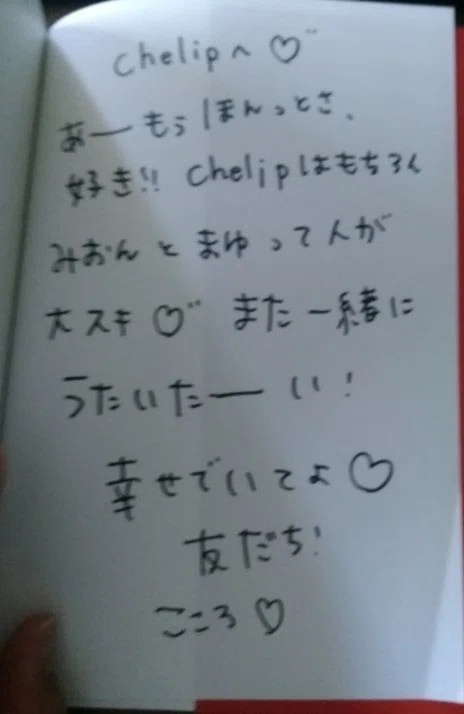 chelipへ♡
あーもうほんっとさ、
好き!! chelipはもちろん
みおんとまゆって人が
大スキ♡ また一緒に
うたいたーい!
幸せでいてよ♡
友だち!
こころ♡